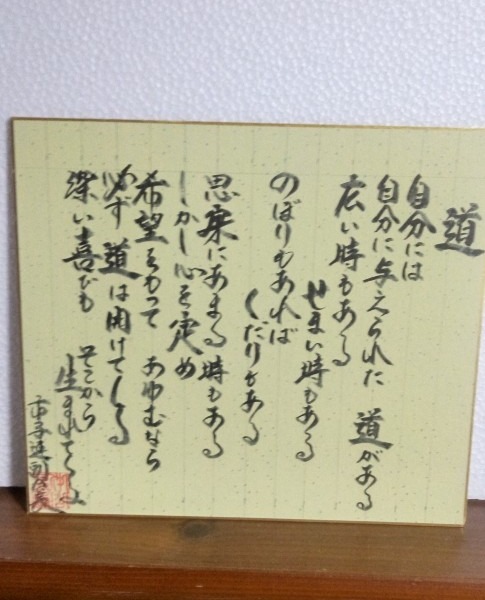 道
自分には
自分に与えられた 道がある
広い時もある
せまい時もある
のぼりもあれば
くだりもある
思案にあまる時もある
しかし心を定め
希望をもって あゆむなら
必ず 道は開けてくる
深い喜びも そこから
生まれてくる